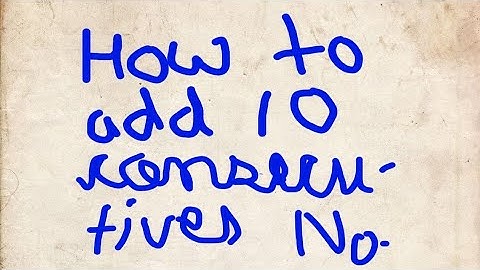 How to
add 10
consecu-
tives No.